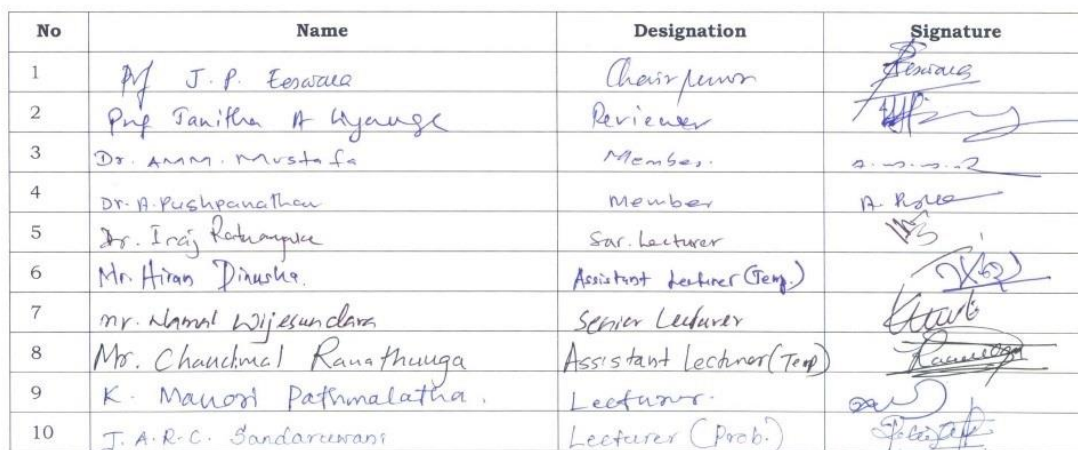 No Name Designation Signature
1 Prof J. P. Eeswara Chairperson Eeswara
2 Prof Janitha A Liyange Reviewer
3 Dr. AMM. Mustafa Member.
4 Dr. A. Pushpanathan Member
5 Dr. Iraj Ratnayake Snr. Lecturer
6 Mr. Hiran Dinusha. Assistant Lecturer (Temp.)
7 Mr. Namal Wijesundara Senior Lecturer
8 Mr. Chandimal Ranathunga Assistant Lecturer (Temp)
9 K. Manori Pathmalatha. Lecturer.
10 J. A. R. C. Sandaruwani Lecturer (Prob.)